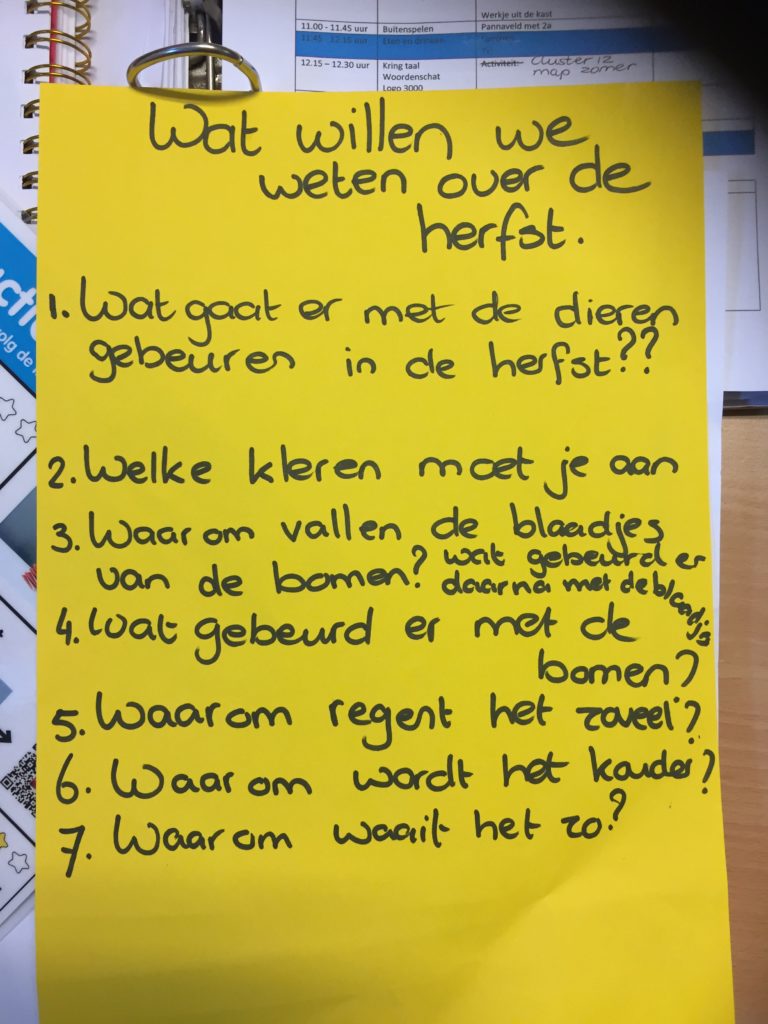 Werkje uit de kast
11.00 - 11.45 uur Buitenspelen Pannaveld met 2a
11.45 - 12.15 uur Eten en drinken
12.15 – 12.30 uur Kring taal Activiteit: Cluster 12
Woordenschat map zomer
Logo 3000
Wat willen we
weten over de
herfst.
1. Wat gaat er met de dieren
gebeuren in de herfst??
2. Welke kleren moet je aan
3. Waarom vallen de blaadjes
van de bomen? wat gebeurd er
daarna met de blaadjes
4. Wat gebeurd er met de
bomen?
5. Waarom regent het zoveel?
6. Waarom wordt het kouder?
7. Waarom waait het zo?
olg de